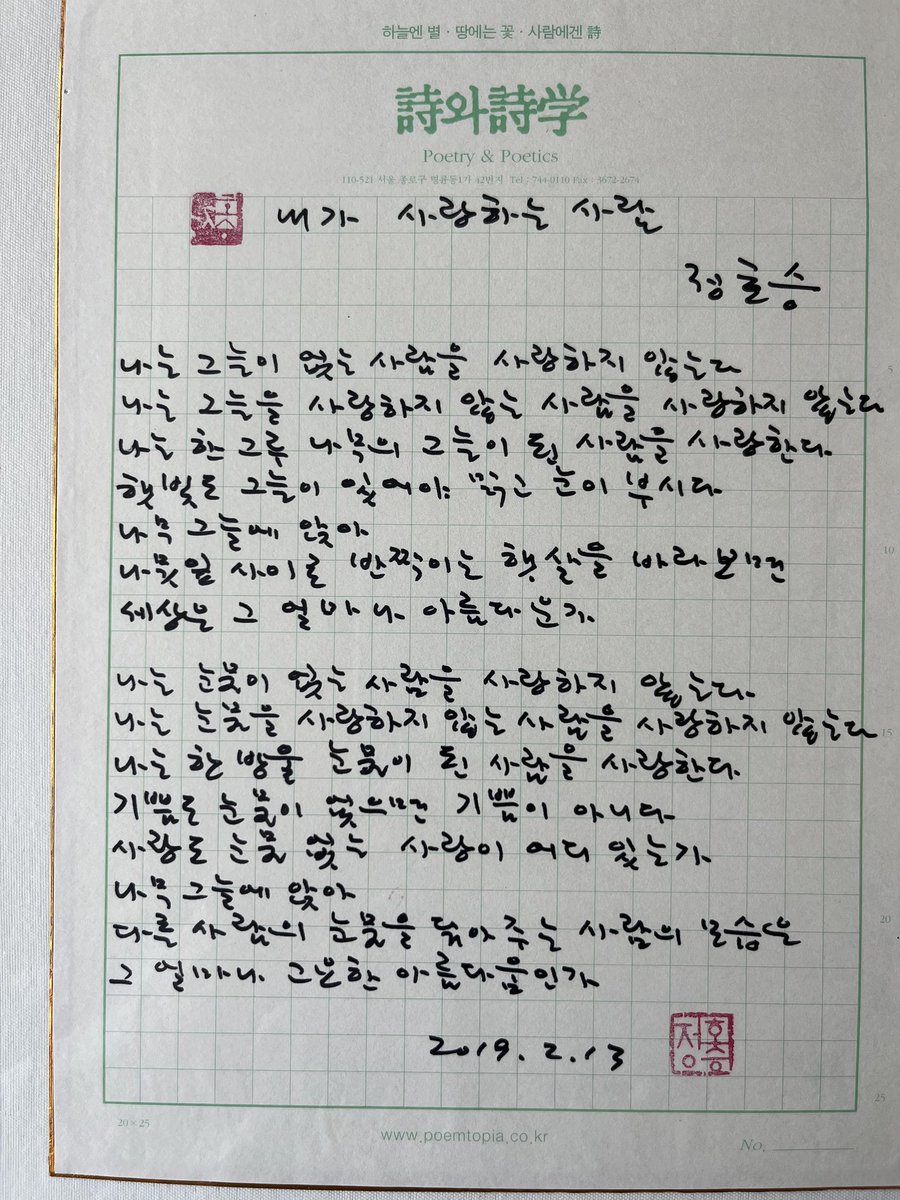 하늘엔 별 · 땅에는 꽃 · 사람에겐 詩
詩와詩学
Poetry & Poetics
110-521 서울 종로구 명륜동1가 42번지 Tel : 744-0110 Fax : 3672-2674
내가 사랑하는 사람
정호승
나는 그늘이 없는 사람을 사랑하지 않는다
나는 그늘을 사랑하지 않는 사람을 사랑하지 않는다
나는 한 그루 나무의 그늘이 된 사람을 사랑한다.
햇빛도 그늘이 있어야 맑고 눈이 부시다.
나무 그늘에 앉아
나뭇잎 사이로 반짝이는 햇살을 바라보면
세상은 그 얼마나 아름다운가.
나는 눈물이 없는 사람을 사랑하지 않는다.
나는 눈물을 사랑하지 않는 사람을 사랑하지 않는다
나는 한 방울 눈물이 된 사람을 사랑한다.
기쁨도 눈물이 없으면 기쁨이 아니다.
사랑도 눈물 없는 사랑이 어디 있는가.
나무 그늘에 앉아
다른 사람의 눈물을 닦아주는 사람의 모습은
그 얼마나 고요한 아름다움인가
2019. 2. 13
정호승
5
10
15
20
25
20×25
www.poemtopia.co.kr
No.